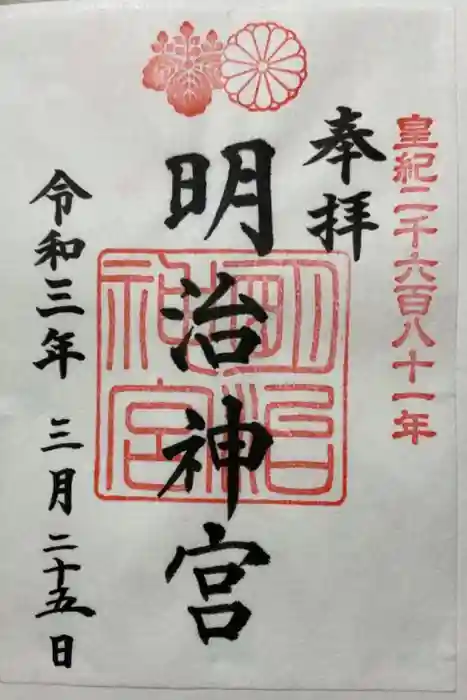 皇紀二千六百八十一年
奉拝
明治神宮
明治神宮
令和三年 三月二十五日